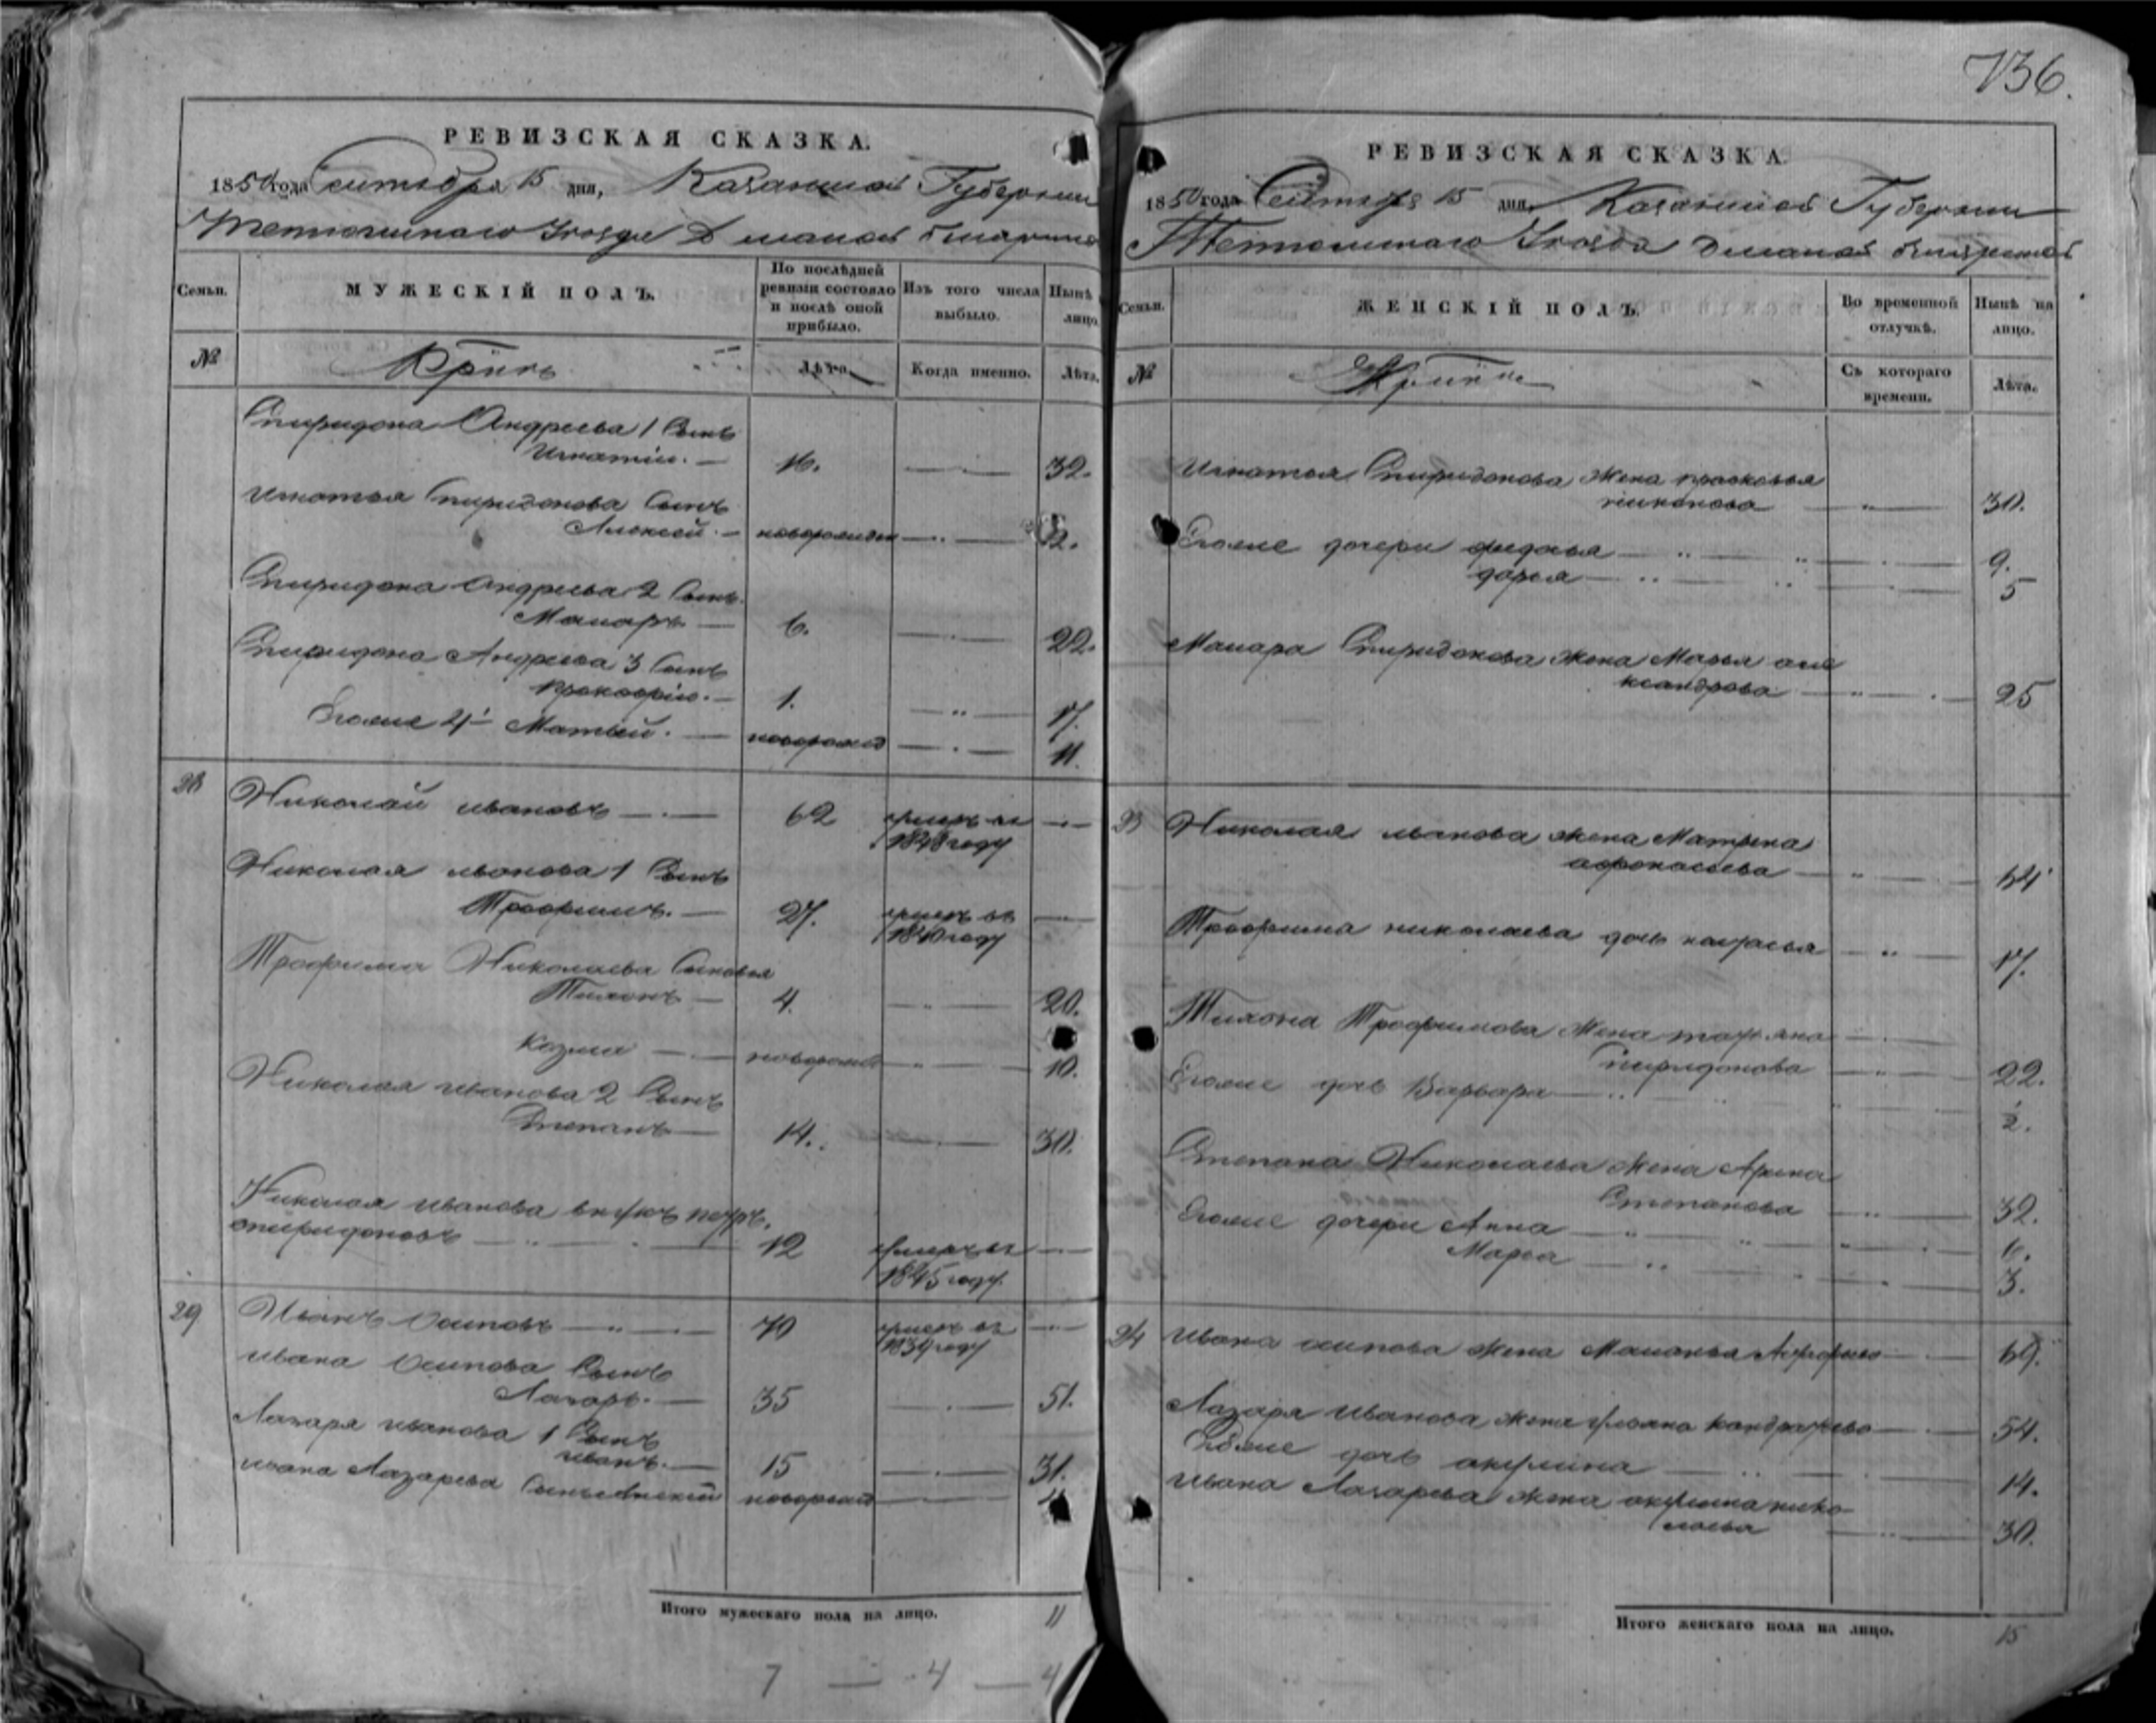 736.
РЕВИЗСКАЯ СКАЗКА.
1850 года Сентября 15 дня, Казанской Губернии
Тетюшинаго Уезда
Семьи.
МУЖЕСКІЙ ПОЛЪ.
По послѣдней ревизіи состояло и послѣ оной прибыло.
Изъ того числа выбыло.
Нынѣ лицо.
№
Лѣта.
Когда именно.
Лѣта.
Спиридона Андреева 1 Сынъ
Игнатій. — 16. — 32.
Игнатья Спиридонова Сынъ
Алексей. — новорожден — 12.
Спиридона Андреева 2 Сынъ
Макаръ — 6. — 22.
Спиридона Андреева 3 Сынъ
Прокофій. — 1. — 17.
Егоже 4й Матвей. — новорожд — 11.
28 Николай ивановъ — 62 умеръ въ —
1848 году
Николая иванова 1 Сынъ
Трофимъ. — 27. умеръ въ —
1840 году
Трофима Николаева Сыновья
Тихонъ — 4. — 20.
Козма — новорожд — 10.
Николая иванова 2 Сынъ
Степанъ — 14. — 30.
Николая иванова внукъ петръ
спиридоновъ — 12 умеръ въ —
1845 году.
29 Иванъ Осиповъ — 70 умеръ въ —
1839 году
ивана Осипова Сынъ
Лазарь. — 35 — 51.
Лазаря иванова 1 Сынъ
иванъ. — 15 — 31.
ивана Лазарева Сынъ новорожд —
Итого мужескаго пола на лицо. 11
7 — 4 — 4
РЕВИЗСКАЯ СКАЗКА
1850 года Сентября 15 дня, Казанской Губернии
Тетюшинаго Уезда
Семьи.
ЖЕНСКІЙ ПОЛЪ.
Во временной отлучкѣ.
Нынѣ на лицо.
№
Съ котораго времени.
Лѣта.
Игнатья Спиридонова Жена прасковья
— 30.
Егоже дочери федосья — 9.
дарья — 5
Макара Спиридонова Жена Марья але
ксандрова — 25
Николая иванова жена Матрена
афонасьева — 64
Трофима николаева дочь настасья — 17.
Тихона Трофимова Жена татьяна
Спиридонова — 22.
Егоже дочь Варвара — 1/2.
Степана Николаева Жена Арина
Степанова — 32.
Егоже дочери Анна — 6.
Марья — 3.
24 Ивана осипова жена Маланья — 69.
Лазаря иванова жена ульяна кандратьева — 54.
Егоже дочь акулина — 14.
ивана Лазарева жена акулина нико
лаева — 30.
Итого женскаго пола на лицо. 15